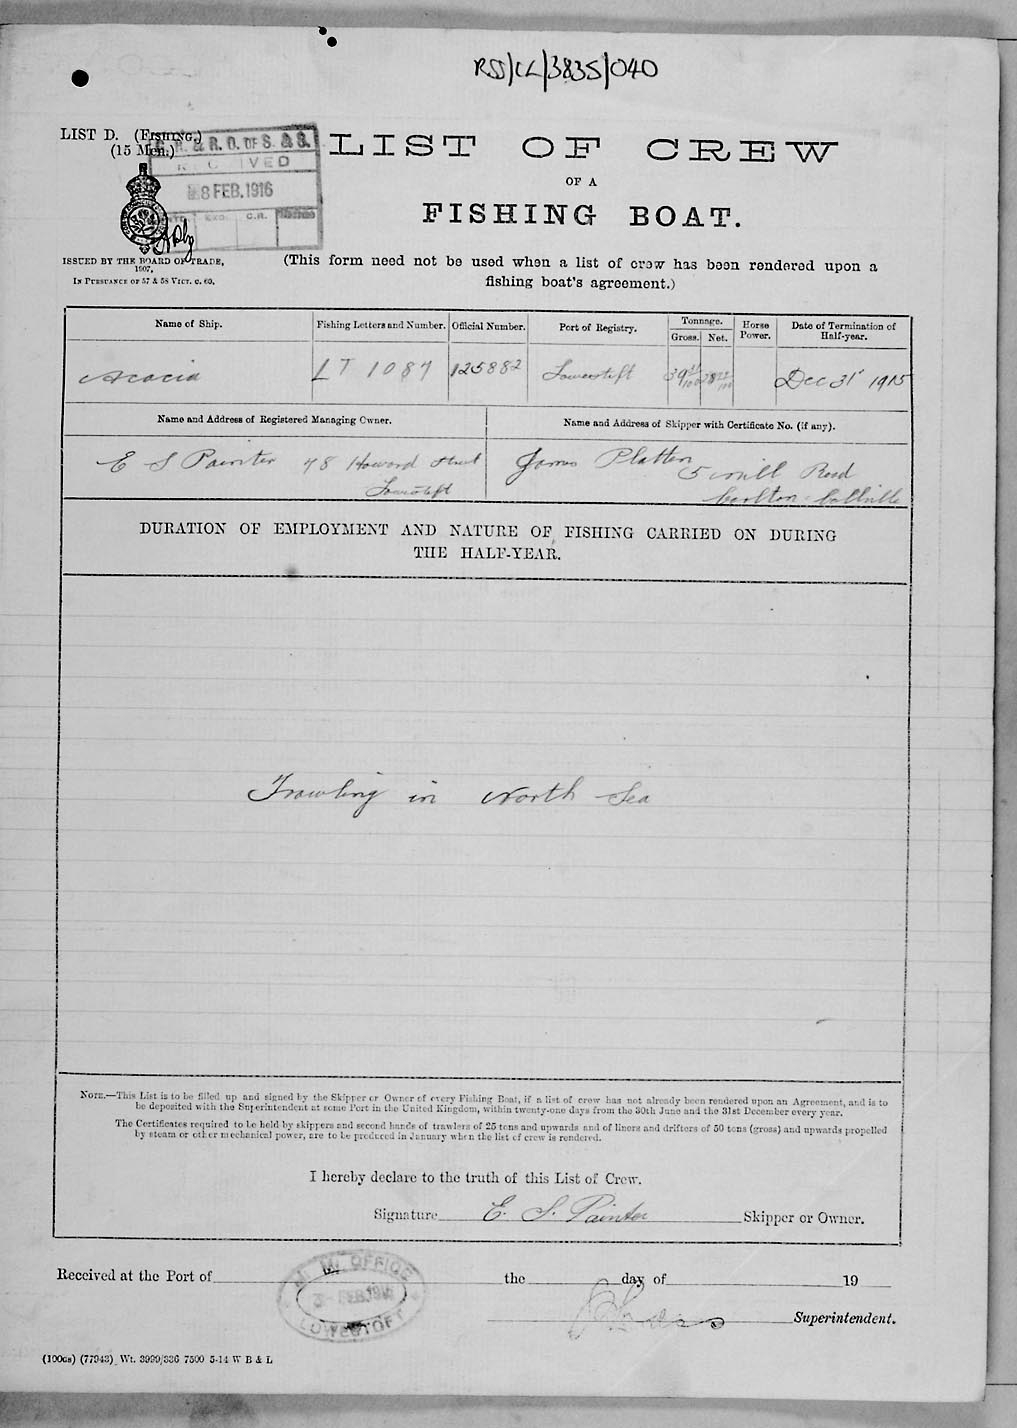 RSS/CL/3835/040
LIST D. (FISHING.)
(15 Men.)
R. & R. O. OF S. & S.
RECEIVED
8 FEB. 1916
EXD. C.R.
LIST OF CREW
OF A
FISHING BOAT.
ISSUED BY THE BOARD OF TRADE,
1907,
IN PURSUANCE OF 57 & 58 VICT. C. 60.
(This form need not be used when a list of crew has been rendered upon a
fishing boat's agreement.)
Name of Ship. Fishing Letters and Number. Official Number. Port of Registry. Tonnage. Horse Power. Date of Termination of Half-year.
Gross. Net.
Acacia LT 1087 125882 Lowestoft Dec 31st 1915
Name and Address of Registered Managing Owner. Name and Address of Skipper with Certificate No. (if any).
E S Painter 48 Howard Street
Lowestoft
James Platten
5 Mill Road
Carlton Colville
DURATION OF EMPLOYMENT AND NATURE OF FISHING CARRIED ON DURING
THE HALF-YEAR.
Trawling in North Sea
NOTE.—This List is to be filled up and signed by the Skipper or Owner of every Fishing Boat, if a list of crew has not already been rendered upon an Agreement, and is to
be deposited with the Superintendent at some Port in the United Kingdom, within twenty-one days from the 30th June and the 31st December every year.
The Certificates required to be held by skippers and second hands of trawlers of 25 tons and upwards and of liners and drifters of 50 tons (gross) and upwards propelled
by steam or other mechanical power, are to be produced in January when the list of crew is rendered.
I hereby declare to the truth of this List of Crew.
Signature E. S. Painter Skipper or Owner.
Received at the Port of the day of 19
M. M. OFFICE
FEB. 1916
LOWESTOFT
Superintendent.
(100gs) (77943) Wt. 3999/336 7500 5-14 W B & L